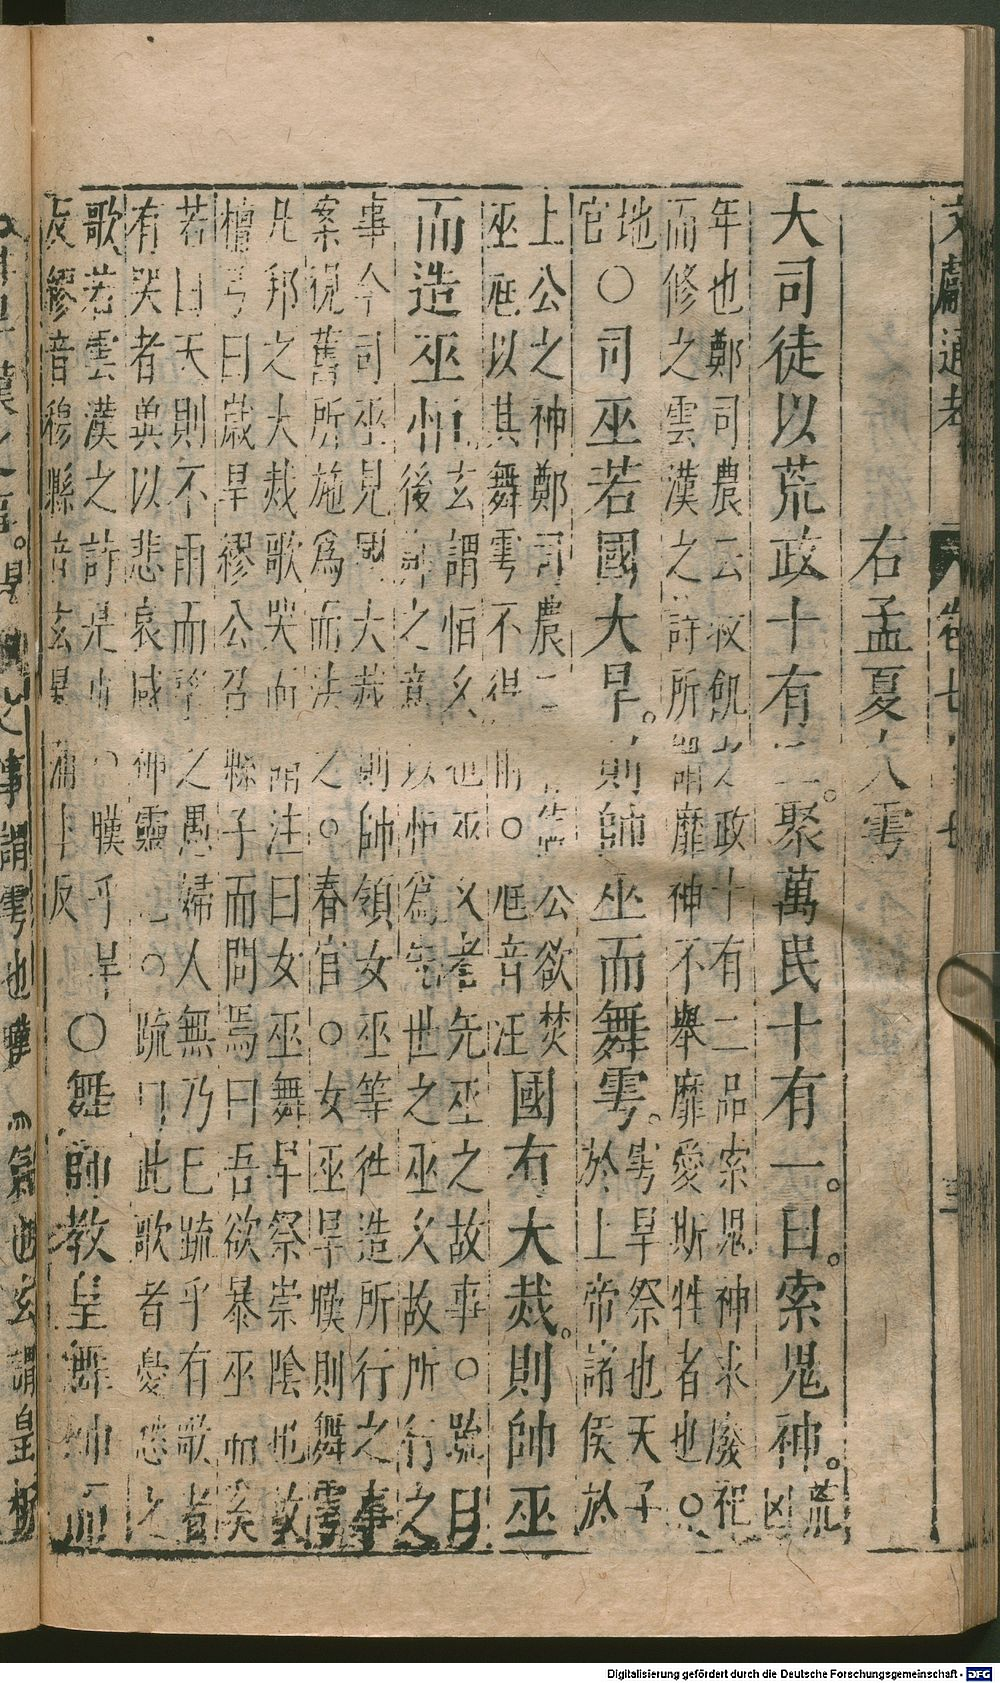 文獻通考 卷七十七 三
右孟夏大雩
大司徒以荒政十有二。聚萬民十有一。曰。索鬼神。荒
凶
年也鄭司農云救飢之政十有二品索鬼神求廢祀
而修之雲漢之詩所謂靡神不舉靡愛斯牲者也○
地
官○司巫若國大旱。則帥巫而舞雩。雩旱祭也天子
於上帝諸侯於
上公之神鄭司農云魯僖公欲焚
巫尪以其舞雩不得雨○尪音汪國有大烖。則帥巫
而造巫恒玄謂恒久也巫久者先巫之故事○疏曰
後鄭之意以恒為先世之巫久故所行之
事今司巫見國大烖則帥領女巫等往造所行之事
案視舊所施為而法之○春官○女巫旱暵則舞雩
凡邦之大烖歌哭而請注曰女巫舞旱祭崇陰也故
檀弓曰歲旱繆公召縣子而問焉曰吾欲暴巫而奚
若曰天則不雨而望之愚婦人無乃巳疏乎有歌者
有哭者兾以悲哀感神靈也○疏曰此歌者憂愁之
歌若雲漢之詩是也○暵乎旱
反繆音穆縣音玄暴蒲卜反○舞師教皇舞帥而
Digitalisierung gefördert durch die Deutsche Forschungsgemeinschaft - DFG